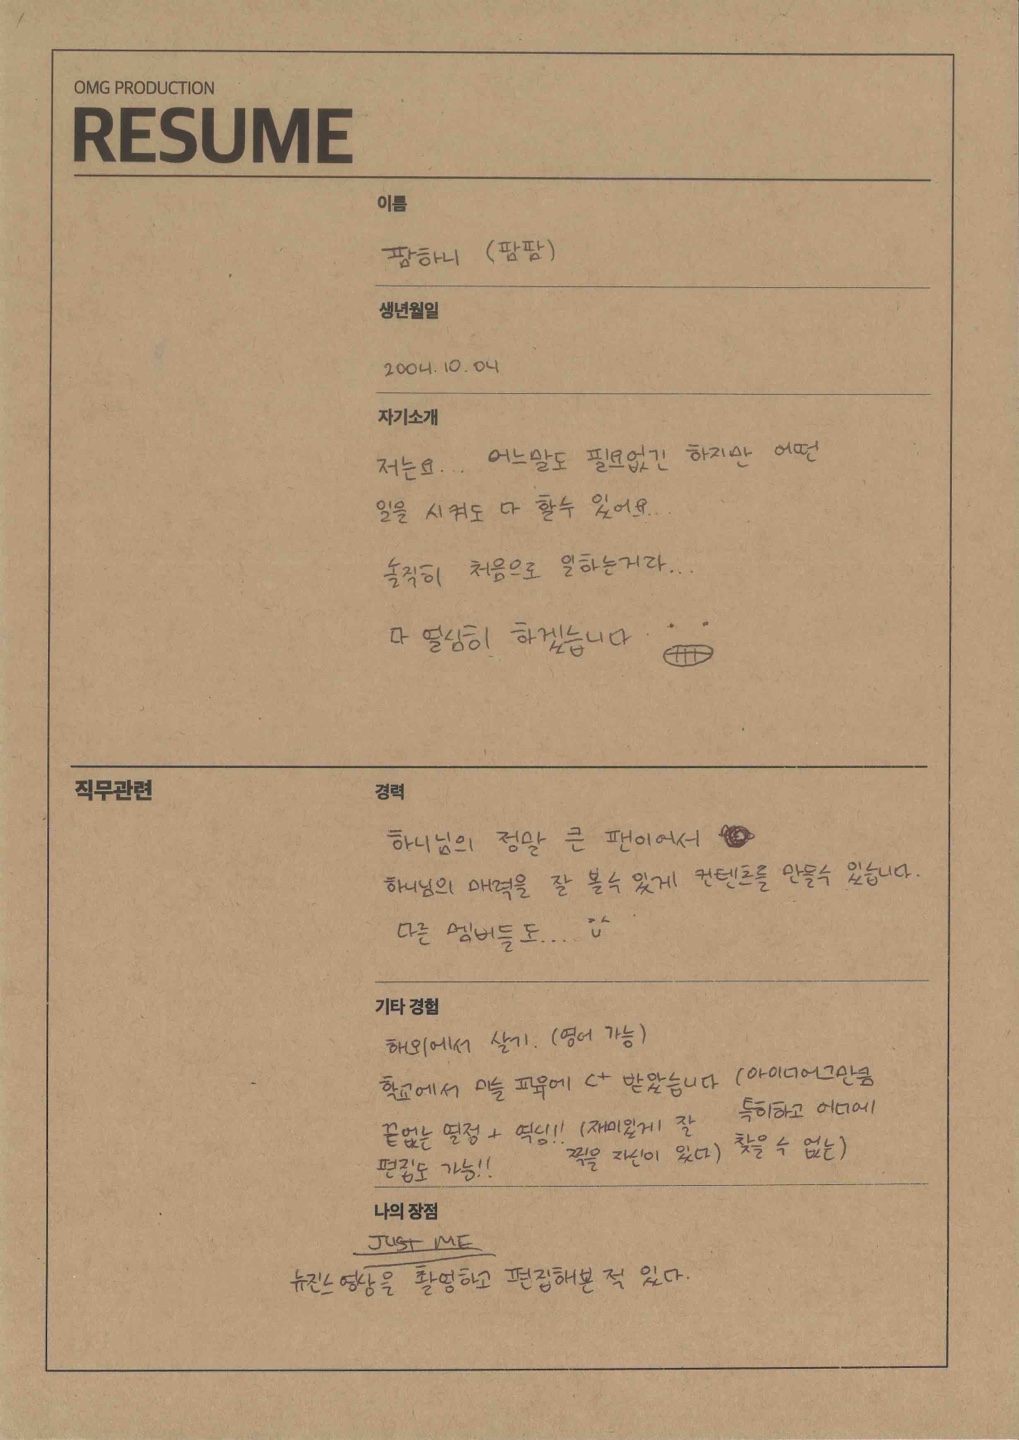 OMG PRODUCTION
RESUME
이름
팜하니 (팜팜)
생년월일
2004.10.04
자기소개
저는요... 어느말도 필요없긴 하지만 어떤
일을 시켜도 다 할수 있어요...
솔직히 처음으로 일하는거라...
다 열심히 하겠습니다
직무관련
경력
하니님의 정말 큰 팬이어서
하니님의 매력을 잘 볼수 있게 컨텐츠를 만들수 있습니다.
다른 멤버들도...
기타 경험
해외에서 살기. (영어 가능)
학교에서 미술 교육에 C+ 받았습니다 (아이디어그만큼
특히하고 어디에
찾을 수 없는)
끝없는 열정 + 역심!! (재미있게 잘
찍을 자신이 있다)
편집도 가능!!
나의 장점
JUST ME
뉴진스 영상을 촬영하고 편집해본 적 있다.